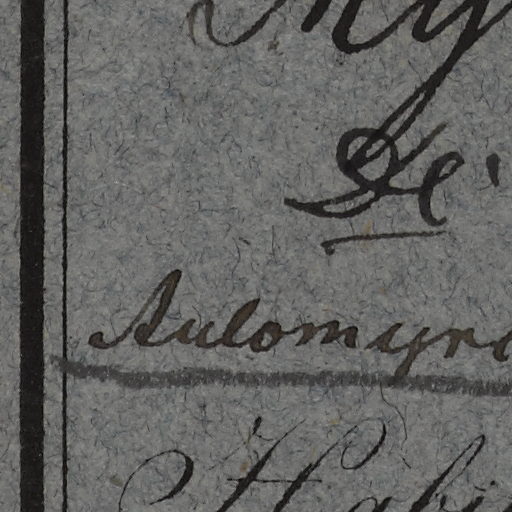 My
De'
Aulomyr
Habi